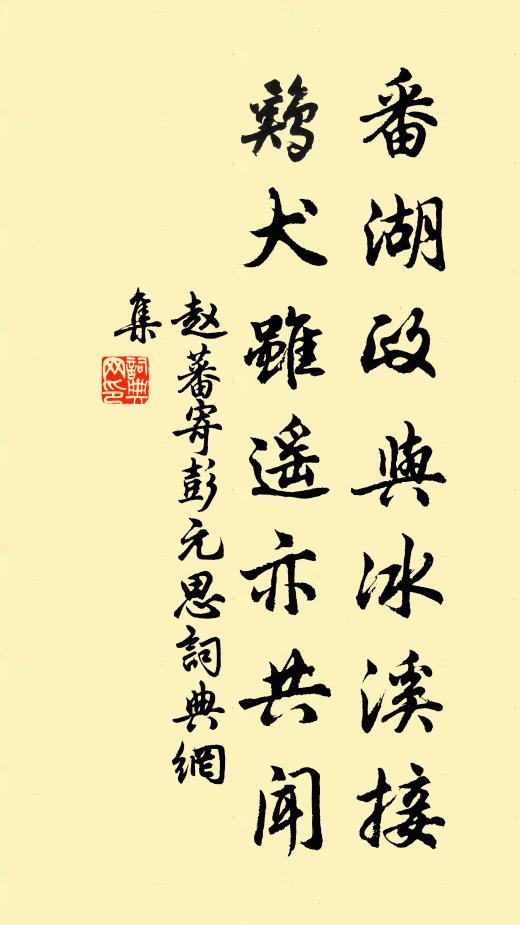 番湖政與冰溪接
鷄犬雖遥亦共聞
赵蕃寄彭元思詞典網
集
詞典
网印